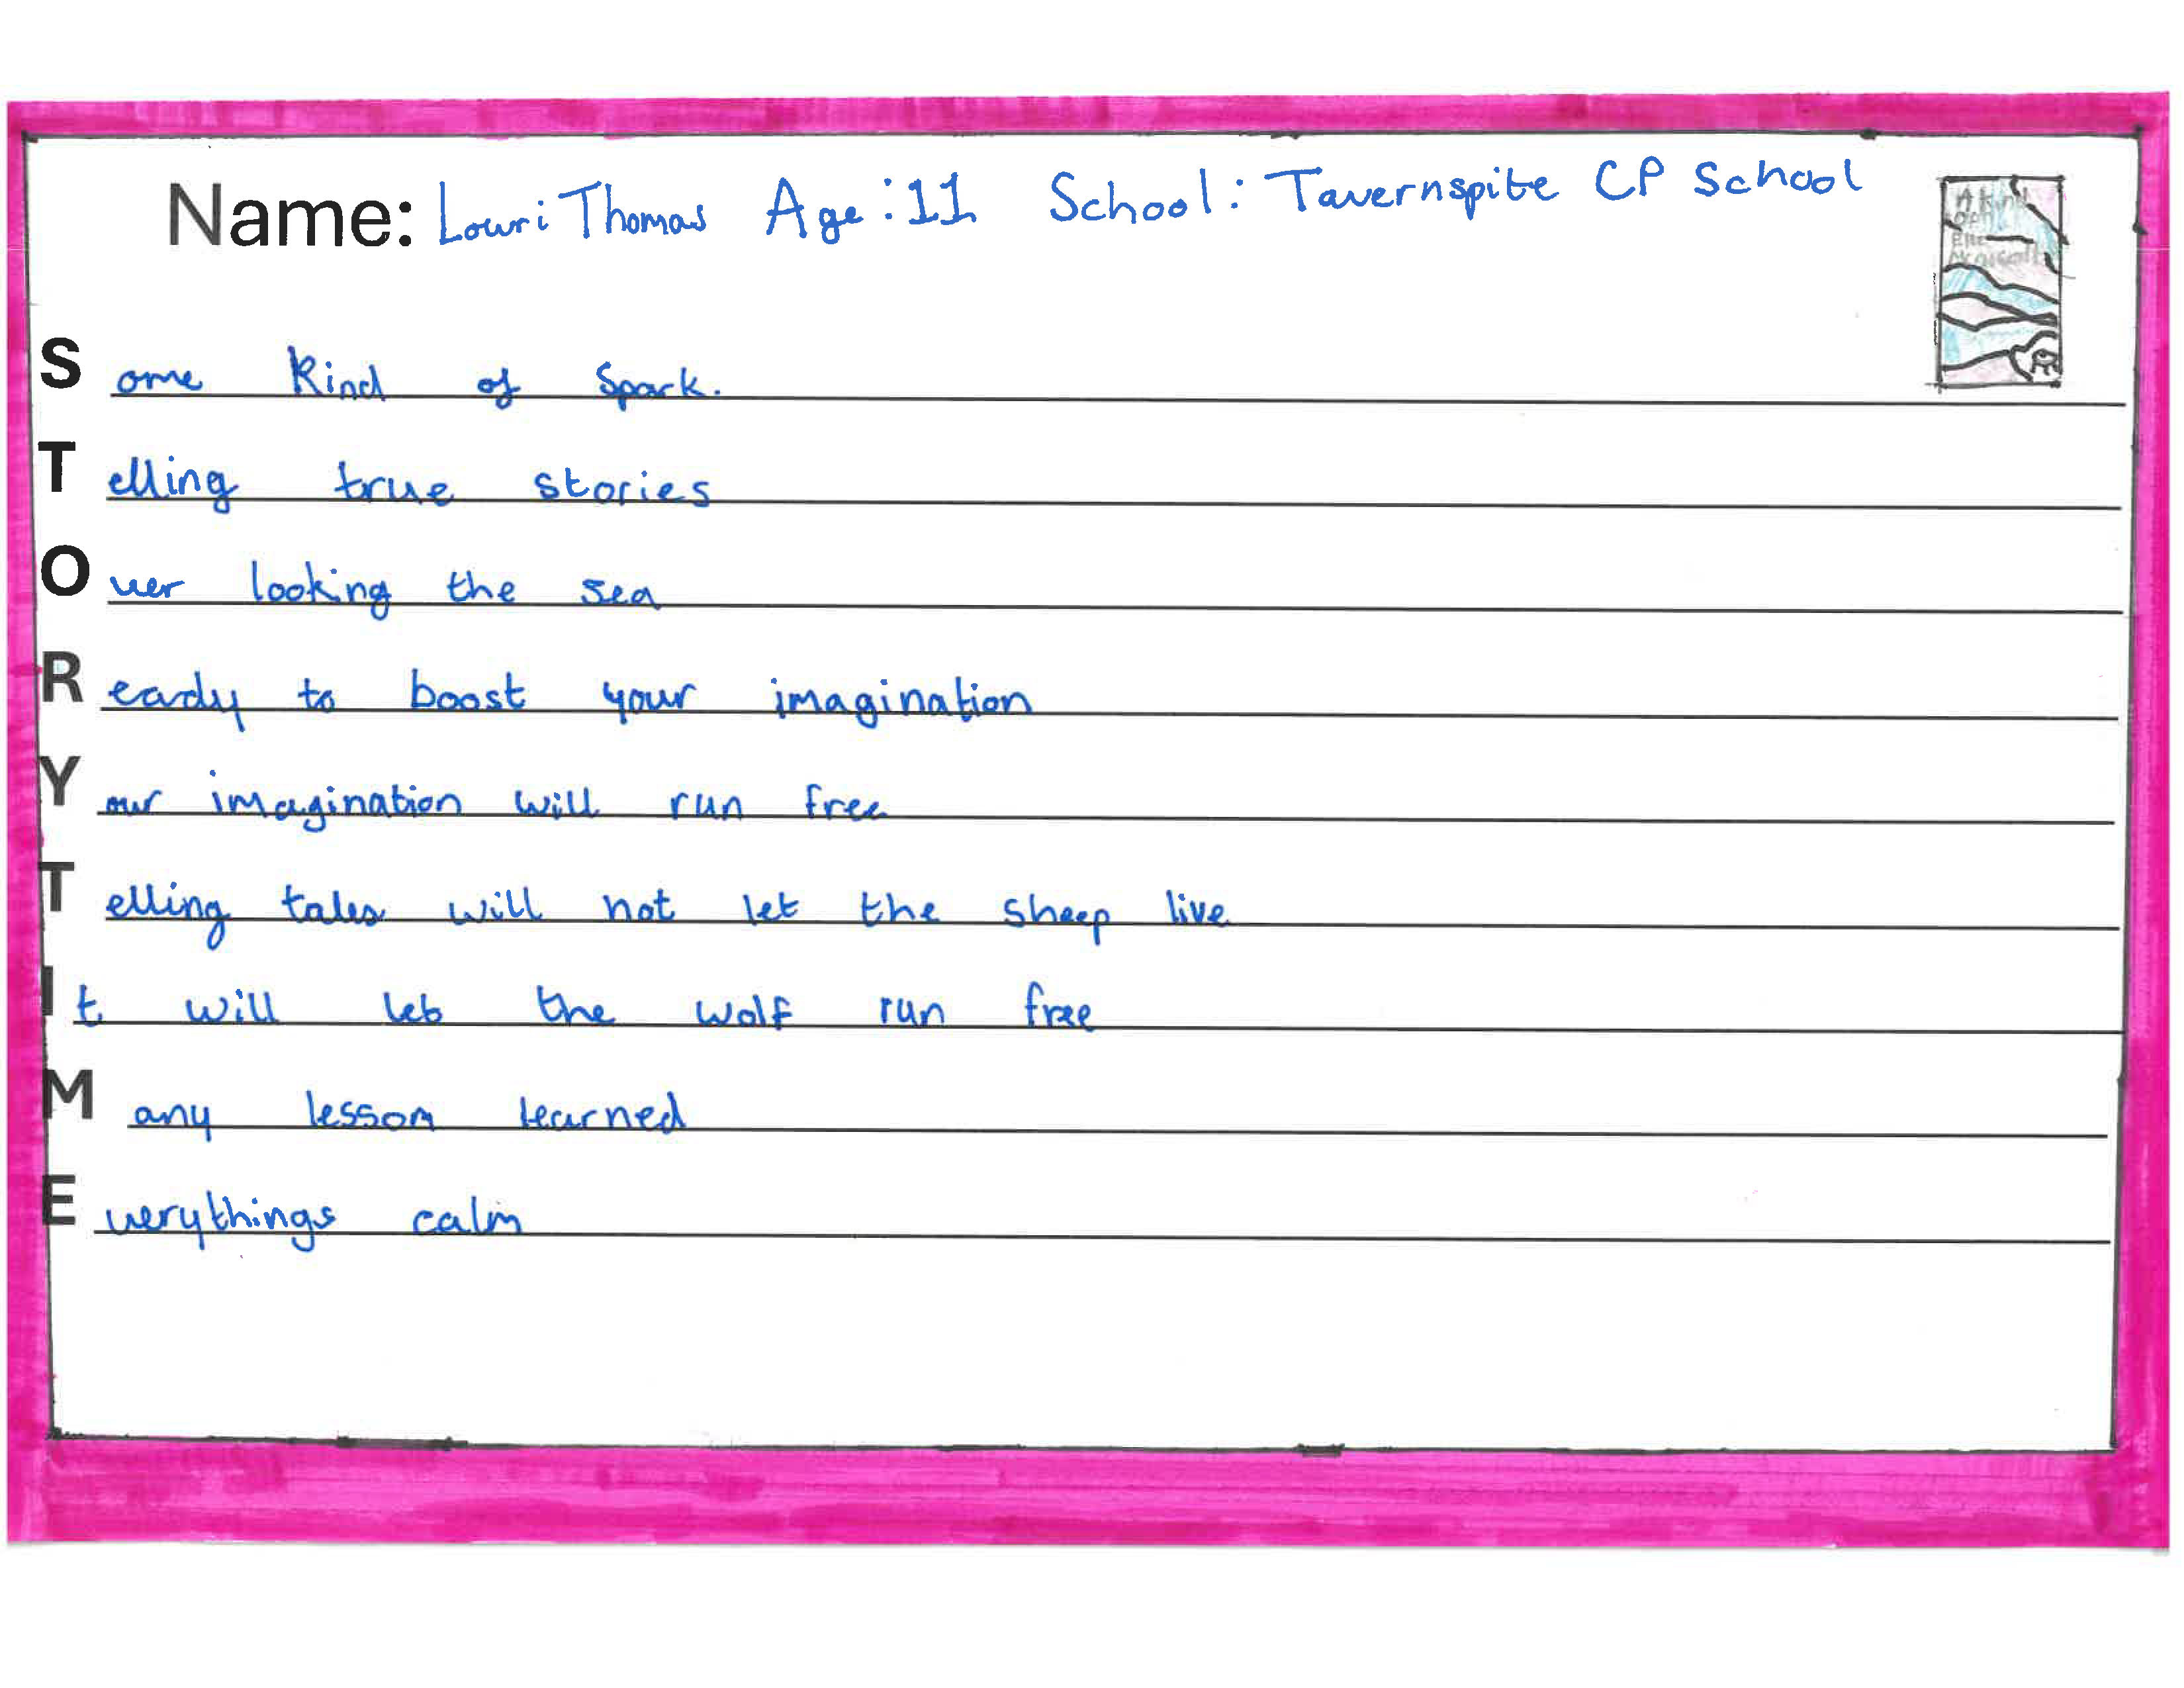 Name: Lowri Thomas Age: 11 School: Tavernspite CP School
A Kind
of
Elle
Some Kind of Spark.
Telling true stories
Over looking the sea
Ready to boost your imagination
Your imagination will run free
Telling tales will not let the sheep live
It will let the wolf run free
Many lesson learned
Everythings calm